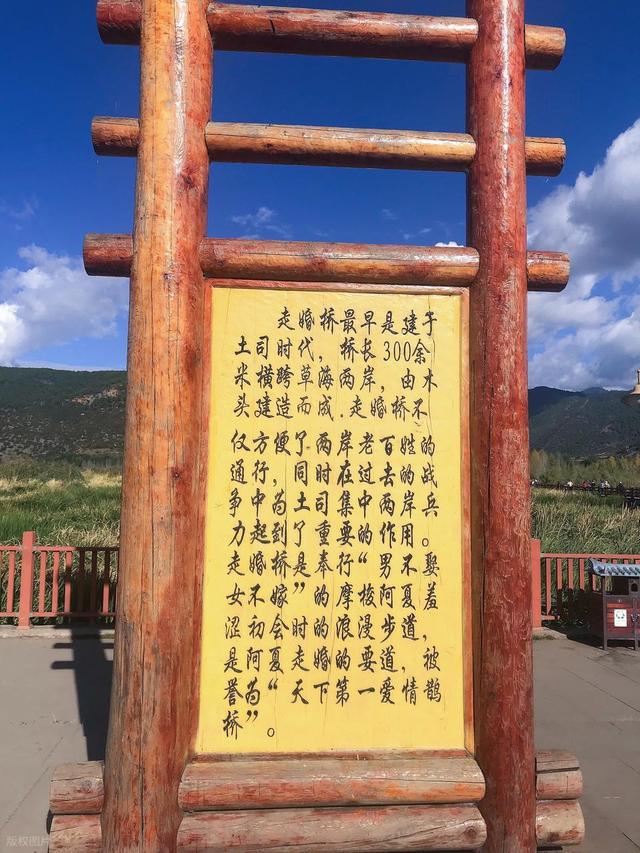 走婚桥最早是建于
土司时代，桥长300余
米横跨草海两岸，由木
头建造而成.走婚桥不
仅方便了两岸老百姓的
通行，同时在过去的战
争中，为土司集中两岸兵
力起到了重要的作用。
走婚桥是奉行“男不娶
女不嫁”的摩梭阿夏羞
涩初会时的浪漫步道，
是阿夏走婚的要道，被
誉为“天下第一爱情鹊
桥”。
版权图片